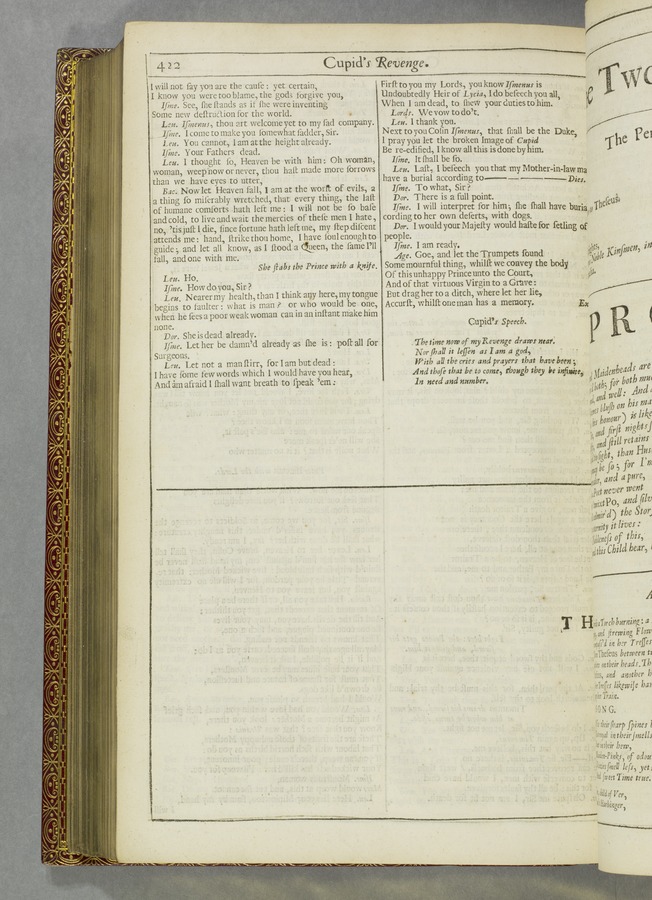 422
Cupid's Revenge.
I will not ſay you are the cauſe: yet certain,
I know you were too blame, the gods forgive you,
Iſme. See, ſhe ſtands as if ſhe were inventing
Some new deſtruction for the world.
Leu. Iſmenus, thou art welcome yet to my ſad company.
Iſme. I come to make you ſomewhat ſadder, Sir.
Leu. You cannot, I am at the height already.
Iſme. Your Fathers dead.
Leu. I thought ſo, Heaven be with him: Oh woman,
woman, weep now or never, thou haſt made more ſorrows
than we have eyes to utter,
Bac. Now let Heaven fall, I am at the worſt of evils, a
a thing ſo miſerably wretched, that every thing, the laſt
of humane comforts hath left me: I will not be ſo baſe
and cold, to live and wait the mercies of theſe men I hate,
no, 'tis juſt I die, ſince fortune hath left me, my ſtep diſcent
attends me: hand, ſtrike thou home, I have ſoul enough to
guide; and let all know, as I ſtood a Queen, the ſame I'll
fall, and one with me.
She ſtabs the Prince with a knife.
Leu. Ho.
Iſme. How do you, Sir?
Leu. Nearer my health, than I think any here, my tongue
begins to faulter: what is man? or who would be one,
when he ſees a poor weak woman can in an inſtant make him
none.
Dor. She is dead already.
Iſme. Let her be damn'd already as ſhe is: poſt all for
Surgeons,
Leu. Let not a man ſtirr, for I am but dead:
I have ſome few words which I would have you hear,
And am afraid I ſhall want breath to ſpeak 'em:
Firſt to you my Lords, you know Iſmenus is
Undoubtedly Heir of Lycia, I do beſeech you all,
When I am dead, to ſhew your duties to him.
Lords. We vow to do't.
Leu. I thank you.
Next to you Coſin Iſmenus, that ſhall be the Duke,
I pray you let the broken Image of Cupid
Be re-edified, I know all this is done by him.
Iſme. It ſhall be ſo.
Leu. Laſt, I beſeech you that my Mother-in-law ma
have a burial according to———— Dies.
Iſme. To what, Sir?
Dor. There is a full point.
Iſme. I will interpret for him; ſhe ſhall have buria
cording to her own deſerts, with dogs.
Dor. I would your Majeſty would haſte for ſetling of
people.
Iſme. I am ready.
Age. Goe, and let the Trumpets ſound
Some mournful thing, whilſt we convey the body
Of this unhappy Prince unto the Court,
And of that virtuous Virgin to a Grave:
But drag her to a ditch, where let her lie,
Accurſt, whilſt one man has a memory. Ex
Cupid's Speech.
The time now of my Revenge draws near.
Nor ſhall it leſſen as I am a god,
With all the cries and prayers that have been;
And thoſe that be to come, though they be infinite,
In need and number.
e Two
The Per
Theſeus
Noble Kinſmen, in
PR
Maidenheads are
both; for both mu
and well: And
bluſh on his ma
honour) is like
and firſt nights
and ſtill retains
ſight, than Huſ
be ſo; for I'm
and a pure,
Poet never went
Po, and ſilv
the Stor
it lives:
of this,
this Child hear,
A
T H
a Torch burning: a
and ſtrewing Flow
in her Treſſes
Theſeus between t
on their heads. Th
and another h
likewiſe ha
Train.
ONG.
their ſharp ſpines
in their ſmells
in their hew,
Pinks, of odou
ſmell leſs, yet
ſweet Time true.
child of Ver,
Harbinger,